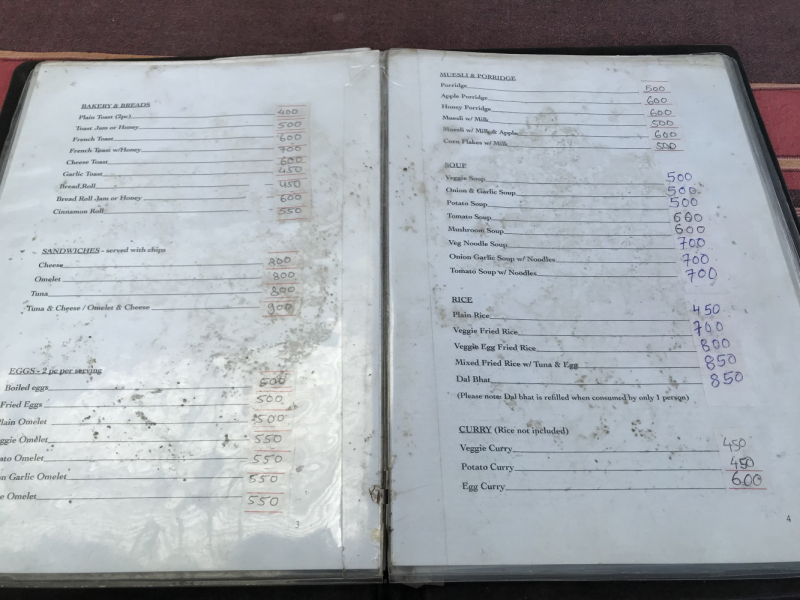 BAKERY & BREADS
Plain Toast (2pc) 400
Toast Jam or Honey 500
French Toast 600
French Toast w/Honey 700
Cheese Toast 600
Garlic Toast 450
Bread Roll 450
Bread Roll Jam or Honey 600
Cinnamon Roll 550
SANDWICHES - served with chips
Cheese 800
Omelet 800
Tuna 800
Tuna & Cheese / Omelet & Cheese 900
EGGS - 2 pc per serving
Boiled eggs 500
Fried Eggs 500
lain Omelet 500
ggie Omelet 550
ato Omelet 550
on Garlic Omelet 550
e Omelet 550
3
MUESLI & PORRIDGE
Porridge 500
Apple Porridge 600
Honey Porridge 600
Muesli w/ Milk 500
Muesli w/ Milk & Apple 600
Corn Flakes w/ Milk 500
SOUP
Veggie Soup 500
Onion & Garlic Soup 500
Potato Soup 500
Tomato Soup 600
Mushroom Soup 600
Veg Noodle Soup 700
Onion Garlic Soup w/ Noodles 700
Tomato Soup w/ Noodles 700
RICE
Plain Rice 450
Veggie Fried Rice 700
Veggie Egg Fried Rice 800
Mixed Fried Rice w/ Tuna & Egg 850
Dal Bhat 850
(Please note: Dal bhat is refilled when consumed by only 1 person)
CURRY (Rice not included)
Veggie Curry 450
Potato Curry 450
Egg Curry 600
4